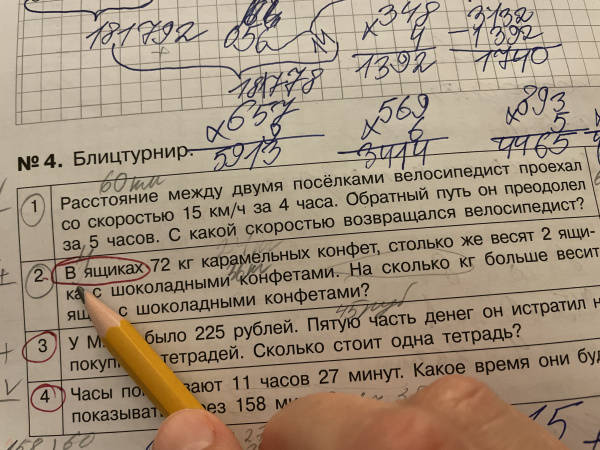 181792 656
18778
348
× 4
1392
3132
- 1392
1740
657
×
5913
569
× 6
3414
893
× 5
4465
№ 4. Блицтурнир.
60 км
1 Расстояние между двумя посёлками велосипедист проехал
со скоростью 15 км/ч за 4 часа. Обратный путь он преодолел
за 5 часов. С какой скоростью возвращался велосипедист?
2 В ящиках 72 кг карамельных конфет, столько же весят 2 ящи-
ка с шоколадными конфетами. На сколько кг больше весит
ящ с шоколадными конфетами?
3 У М было 225 рублей. Пятую часть денег он истратил н
покуп тетрадей. Сколько стоит одна тетрадь?
4 Часы по вают 11 часов 27 минут. Какое время они буд
показыват рез 158 ми
15 +